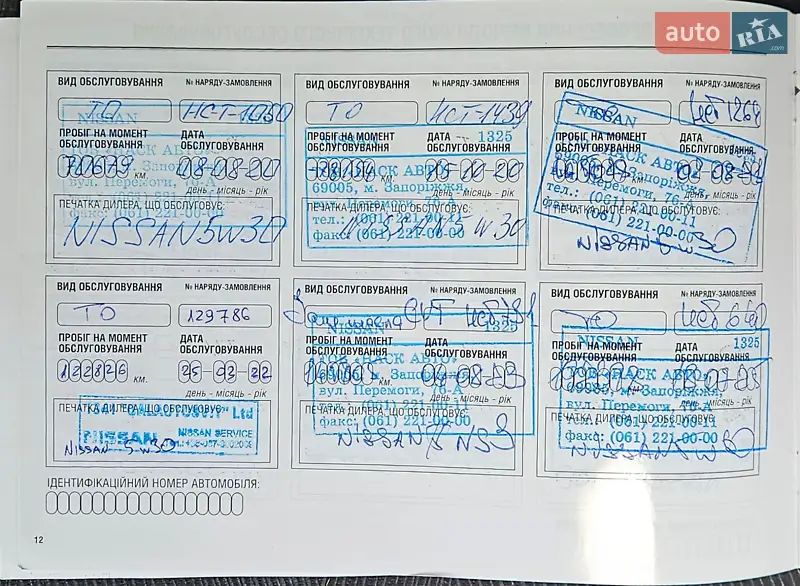 auto RIA.com
ВИД ОБСЛУГОВУВАННЯ № НАРЯДУ-ЗАМОВЛЕННЯ
ТО НСТ-1080
NISSAN
ПРОБІГ НА МОМЕНТ ОБСЛУГОВУВАННЯ ДАТА
КМ. 08-08-20
день - місяць - рік
вул. Перемоги, 76-А
ПЕЧАТКА ДИЛЕРА, ЩО ОБСЛУГОВУЄ:
факс: (061) 221-00-00
NISSAN 5W30
ВИД ОБСЛУГОВУВАННЯ № НАРЯДУ-ЗАМОВЛЕННЯ
ТО НСТ-1439
ПРОБІГ НА МОМЕНТ ОБСЛУГОВУВАННЯ ДАТА 1325
69005, м. Запоріжжя
день - місяць - рік
вул. Перемоги, 76-А
ПЕЧАТКА ДИЛЕРА, ЩО ОБСЛУГОВУЄ:
тел.: (061) 221-00-11
факс: (061) 221-00-00
ВИД ОБСЛУГОВУВАННЯ № НАРЯДУ-ЗАМОВЛЕННЯ
NISSAN
ПРОБІГ НА МОМЕНТ ОБСЛУГОВУВАННЯ ДАТА
69005, м. Запоріжжя,
день - місяць - рік
вул. Перемоги, 76-А
ПЕЧАТКА ДИЛЕРА, ЩО ОБСЛУГОВУЄ:
тел.: (061) 221-00-11
(061) 221-00-00
NISSAN 5w30
ВИД ОБСЛУГОВУВАННЯ № НАРЯДУ-ЗАМОВЛЕННЯ
ТО 129786
ПРОБІГ НА МОМЕНТ ОБСЛУГОВУВАННЯ ДАТА
122826 КМ. 25-03-22
день - місяць - рік
ПЕЧАТКА ДИЛЕРА, ЩО ОБСЛУГОВУЄ:
Ltd
NISSAN NISSAN SERVICE
NISSAN 5-w30
ВИД ОБСЛУГОВУВАННЯ № НАРЯДУ-ЗАМОВЛЕННЯ
CVT
NISSAN 1325
ПРОБІГ НА МОМЕНТ ОБСЛУГОВУВАННЯ ДАТА
ТОВ «ПАСК АВТО»
КМ.
день - місяць - рік
вул. Перемоги, 76-А
ПЕЧАТКА ДИЛЕРА, ЩО ОБСЛУГОВУЄ:
факс: (061) 221-00-00
NISSAN NS3
ВИД ОБСЛУГОВУВАННЯ № НАРЯДУ-ЗАМОВЛЕННЯ
ТО
NISSAN 1325
ПРОБІГ НА МОМЕНТ ОБСЛУГОВУВАННЯ ДАТА
69005, м. Запоріжжя,
день - місяць - рік
вул. Перемоги, 76-А
ПЕЧАТКА ДИЛЕРА, ЩО ОБСЛУГОВУЄ:
факс: (061) 221-00-00
NISSAN 5W30
ІДЕНТИФІКАЦІЙНИЙ НОМЕР АВТОМОБІЛЯ:
12